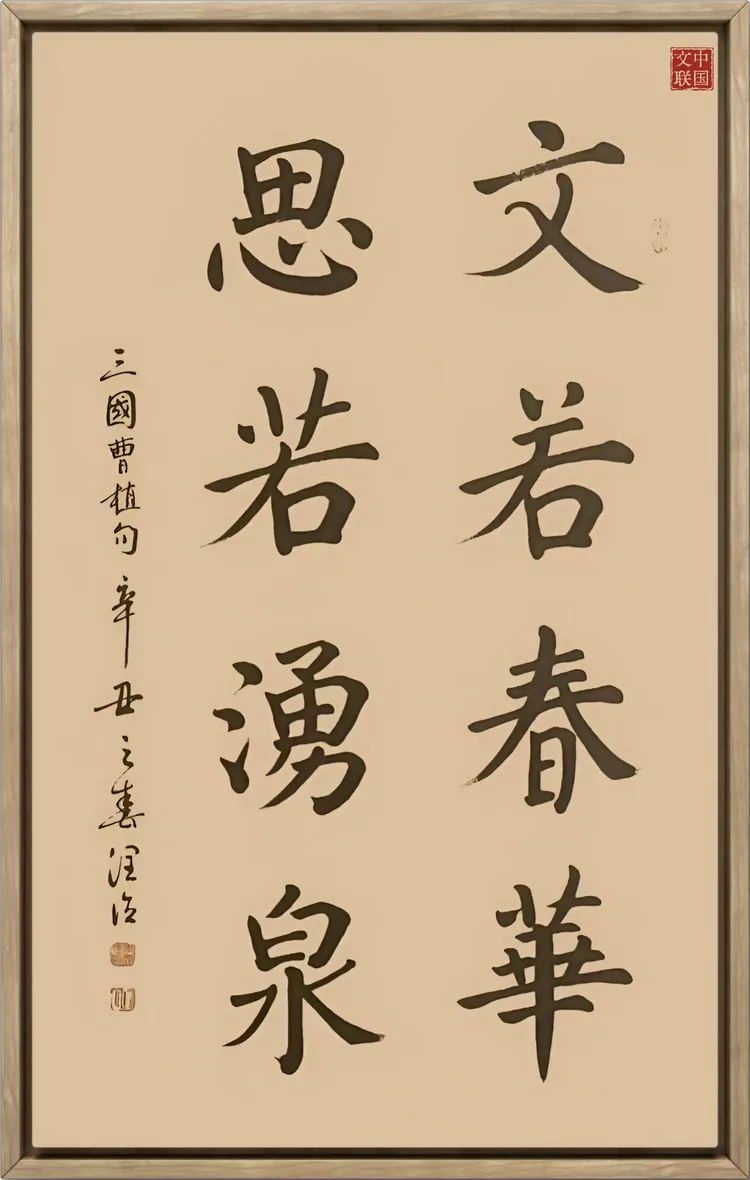 文若春華
思若湧泉
三國曹植句 辛丑之春 润治
中国文联